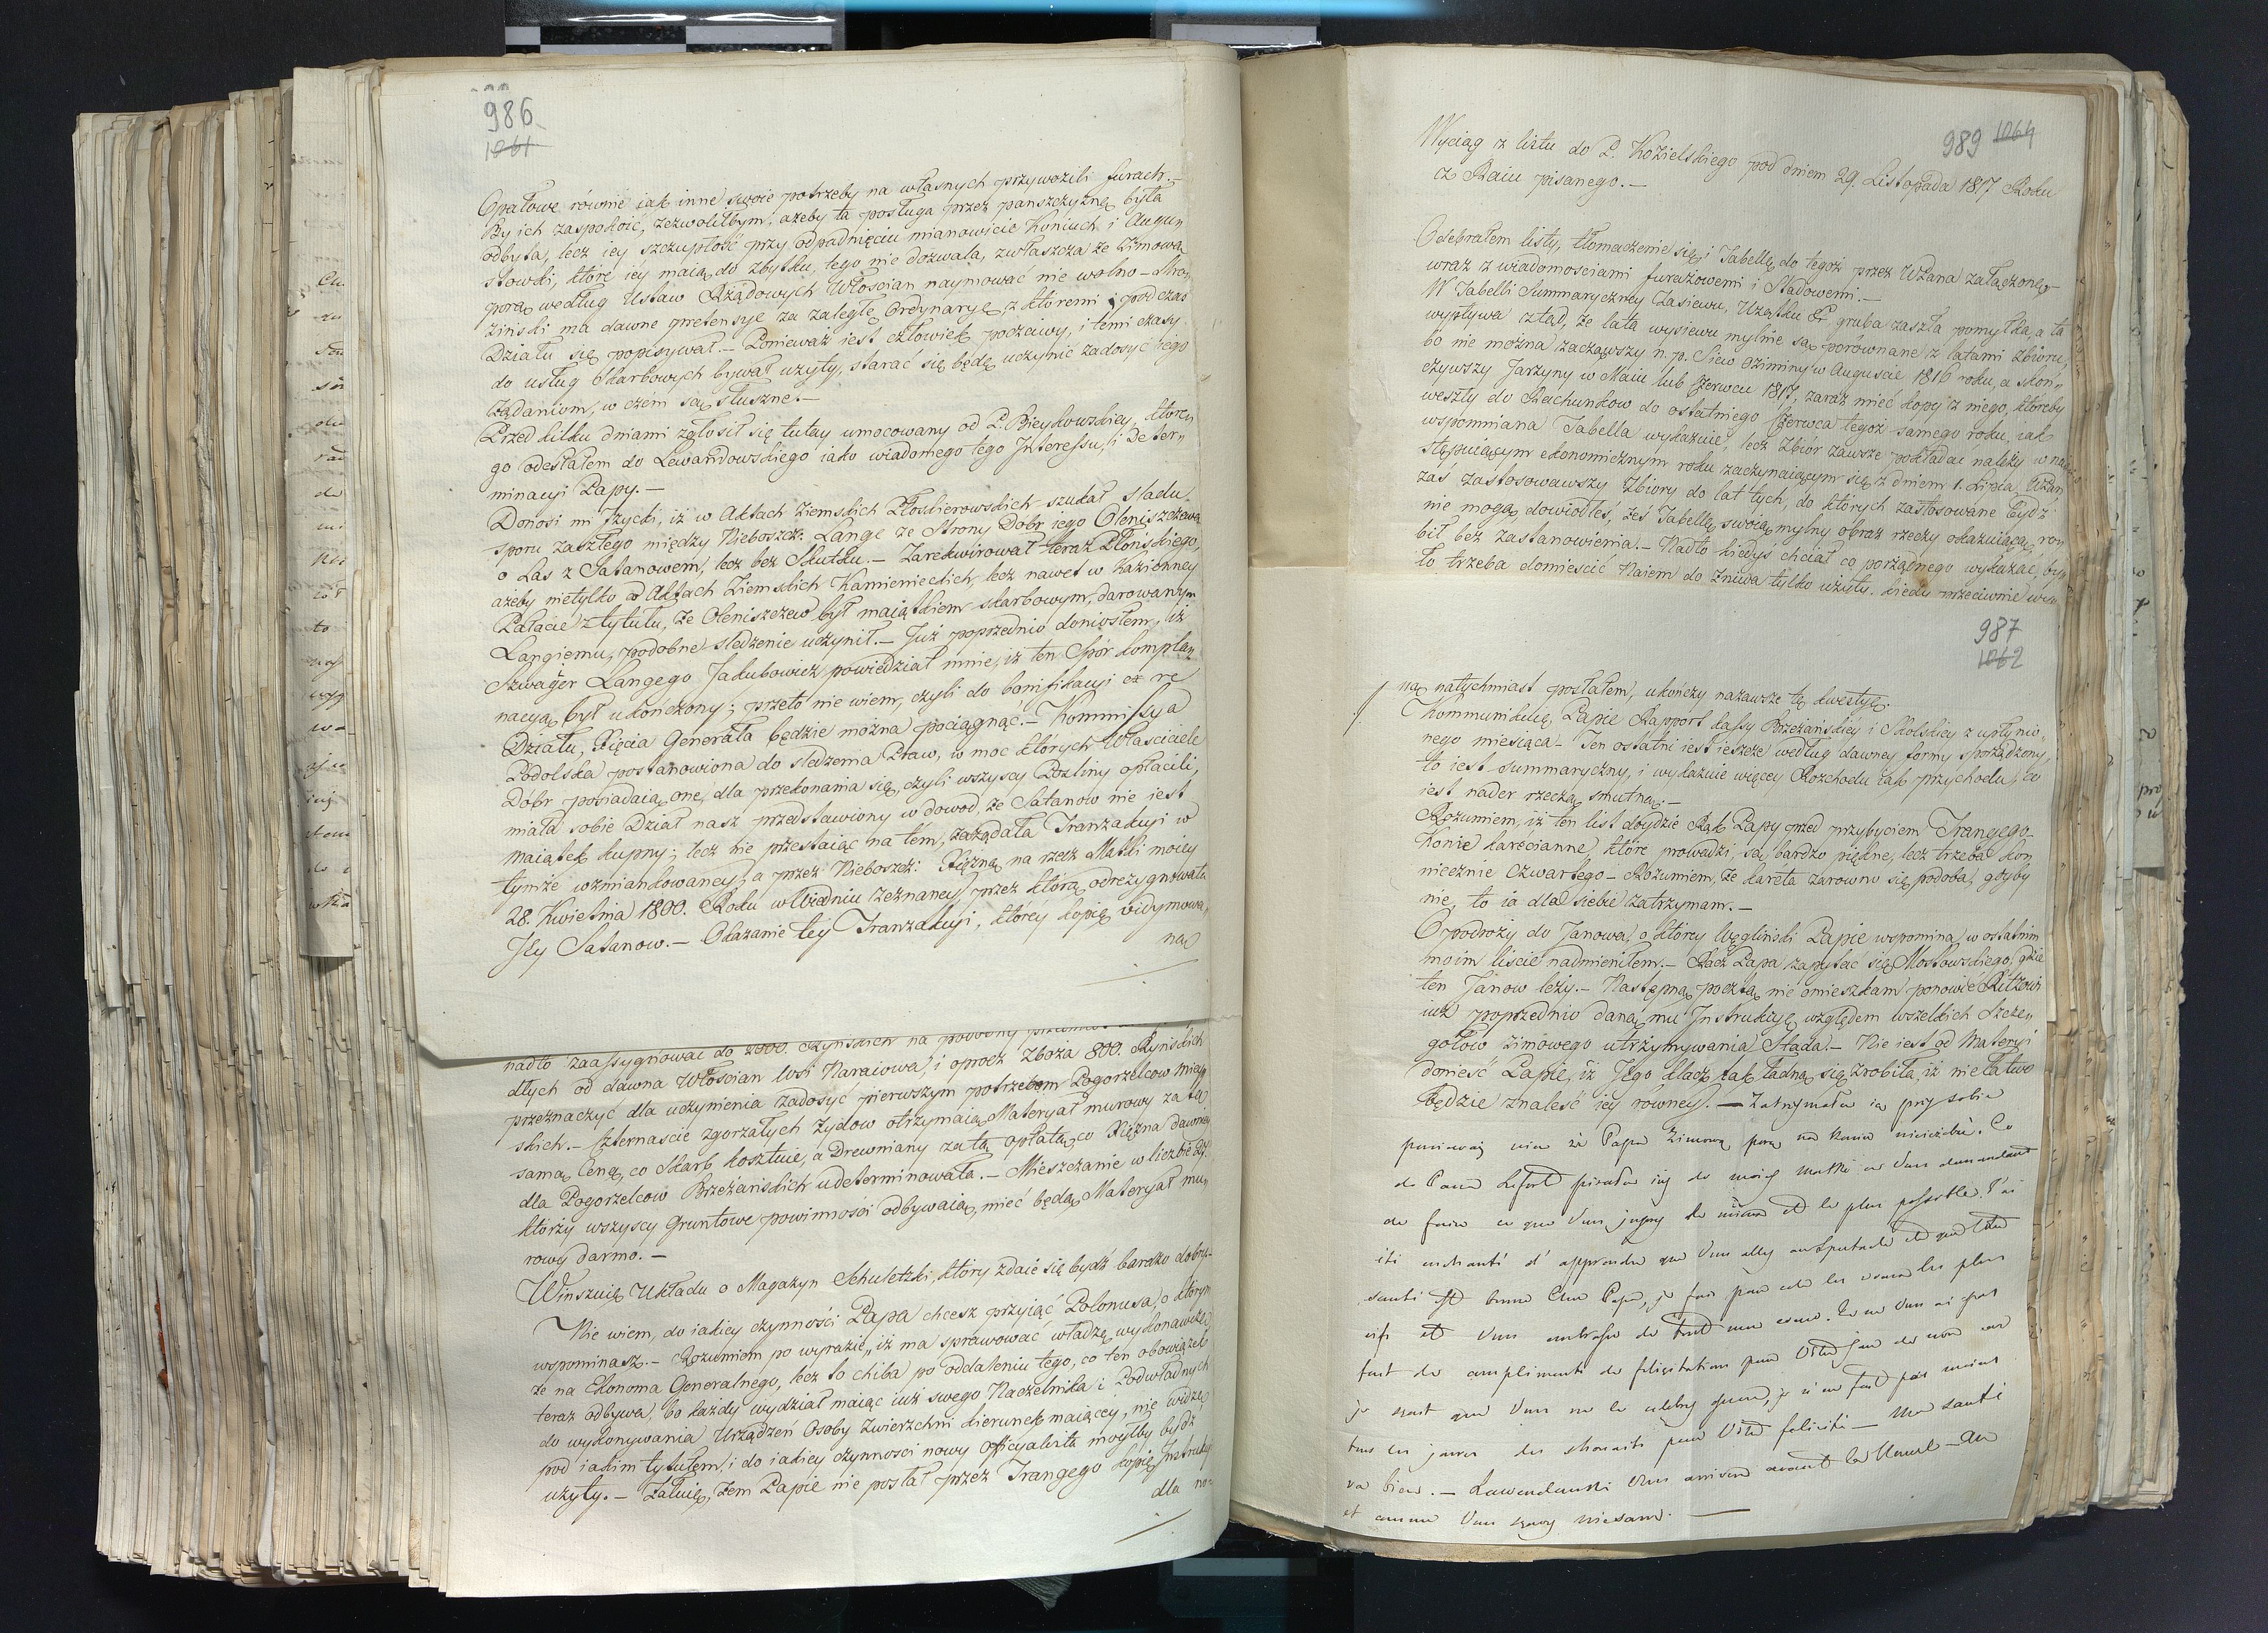 986
1061
Opałowe równie jak inne swoie potrzeby na własnych przywozili furach.—
By ich zaspokoić, zezwoliłbym, ażeby ta posługa przez panszczyznę była
odbyta, lecz iey szczupłość przy odpadnięciu mianowicie Koniuch i Augu„
stowski, które iey maią do zbytku, tego nie dozwala, zwłaszcza że Zimową
porą według Ustaw Rządowych Włościan naymować nie wolno — Mro„
ziński ma dawne pretensye za zaległe Ordynarye, z któremi i podczas
Działu się popisywał.— Ponieważ iest człowiek poczciwy, i temi czasy
do usług Skarbowych bywał użyty, starać się będę uczynić zadosyć iego
Żądaniom, w czém są słuszne.—
Przed kilku dniami zgłosił się tutay umocowany od P. Bieykowskiey, którego
go odesłałem do Lewandowskiego iako wiadomego tego Interessu, i Deter„
minacyi Papy.—
Donosi mi Izycki, iż w Aktach Ziemskich Płoskierowskich szukał śladu
sporu zaszłego między Nieboszcz: Lange ze Strony Dobr iego Oleniszczewa
o Las z Satanowem, lecz bez Skutku.— Zarekwirował teraz Płońskiego,
ażeby nietylko w Aktach Ziemskich Kamienieckich lecz nawet w Kazionney
Pałacie z tytułu, że Oleniszczew był maiątkiem skarbowym, darowanym
Langiemu, podobne śledzenie uczynił.— Już poprzednio doniosłem, iż
Szwager Langego Jakubowicz powiedział mnie, iż ten Spór kompla„
nacyą był ukończony; przeto nie wiem, czyli do bonifikacyi ex re
Działu, Xięcia Generała będzie można pociągnąć.— Kommissya
Podolska postanowiona do śledzenia Praw, w moc których Właściciele
Dobr posiadaią one, dla przekonania się, czyli wszyscy Poszliny opłacili,
miała sobie Dział nasz przedstawiony w dowod, że Satanow nie iest
Maiątek kupny; lecz nie przestaiąc na tém, zażądała Tranzakcyi w
tymże wzmiankowaney, a przez Nieboszcz: Xiężnę na rzecz Matki moiey
28. Kwietnia 1800. Roku w Wiedniu zeznaney, przez którą odrezygnowała
Jey Satanow.— Okazanie tey Tranzakcyi, którey kopię vidymowa„
ną
nadto zaassygnować do 2000. Ryńskich na podobny
dłych od dawna Włościan wsi Naraiowa, i oprocz Zboża 800. Ryńskich
przeznaczyć dla uczynienia zadosyć pierwszym potrzebom Pogorzelcow miey„
skich.— Czternascie zgorzałych Żydow otrzymaią Materyał murowy za tę
samą Cenę, co Skarb kosztuie, a Drewniany za tą opłatą, co Xiężna dawniey
dla Pogorzelcow Brzeżańskich udeterminowała.— Mieszczanie w liczbie 27.
którzy wszyscy gruntowe powinności odbywaią, mieć będą Materyał mu„
rowy darmo.—
Winszuię Układu o Magazyn Schuletzki, który zdaie się bydź bardzo dobry.—
Nie wiem, do iakiey czynności Papa chcesz przyiąć Polonusa, o którym
wspominasz.— Rozumiem po wyrazie, iż ma sprawować władzę wykonawczą,
że na Ekonoma Generalnego, lecz to chiba po oddaleniu tego, co ten obowiązek
teraz odbywa, bo każdy wydział maiąc iuż swego Naczelnika i Podwładnych
do wykonywania Urządzeń Osoby zwierzchni kierunek maiącey, nie widzę
pod iakim tytułem, i do iakiey czynności nowy Officyalista mógłby bydź
użyty.— Żałuię, żem Papie nie posłał przez Trangego kopię Instrukcyi
dla no„
989 1064
Wyciąg z listu do P. Kozielskiego pod dniem 29. Listopada 1817 Roku
z Raiu pisanego.—
Odebrałem listy, tłomaczenie się i Tabellę do tegoż przez WPana załączoną
wraz z wiadomosciami furażowemi i Stadowemi.—
W Tabelli Summaryczney Zasiewu, Urzątku & gruba zaszła pomyłka, a ta
wypływa ztąd, że lata wysiewu mylnie są porównane z latami zbioru,
bo nie można zacząwszy n. p. Siew Oziminy w Auguscie 1816 roku, a skoń„
czywszy Jarzyny w Maiu lub Czerwcu 1817, zaraz mieć kopy z niego, któreby
weszły do Rachunkow do ostatniego Czerwca tegoż samego roku, iak
wspomniana Tabella wykazuie, lecz Zbiór zawsze pokładać należy w na„
stępuiącym ekonomicznym roku zaczynaiącym się z dniem 1. Lipca, WPan
zaś zastosowawszy Zbiory do lat tych, do których zastosowane bydź
nie mogą, dowiodłeś, żeś Tabellę swoią mylny obraz rzeczy okazuiącą ro„
bił bez zastanowienia.— Nadto kiedyś chciał co porządnego wykazać, by„
ło trzeba domieścić Naiem do Żniwa tylko użyty, kiedy przeciwnie
987
1062
ną natychmiast posłałem, ukończy nazawsze tę kwestyę.
Kommunikuię Papie Rapport kassy Brzeżańskiey i Skolskiey z upłynio„
nego miesiąca — Ten ostatni iest ieszcze według dawney formy sporządzony,
to iest summaryczny, i wykazuie więcey Rozchodu iak przychodu, co
iest nader rzeczą smutną.—
Rozumiem, iż ten list doydzie Rąk Papy przed przybyciem Trangego—
Konie karécianne, które prowadzi, są bardzo piękne, lecz trzeba ko„
niecznie Czwartego — Rozumiem, że karéta zarowno się podoba, gdyby
nie, to ia dla siebie zatrzymam.—
O podroży do Janowa, o którey Węgliński Papie wspomina, w ostatnim
moim liscie nadmieniłem.— Racz Papa zapytać się Mostowskiego, gdzie
ten Janow leży.— Następną pocztą nie omieszkam ponowić Ritzowi
iuż poprzednio daną mu Instrukcyę względem wszelkich Szcze„
gołow zimowego utrzymywania Stada.— Nie iest od Materyi
donieść Papie, iż Jego klacz tak ładną się zrobiła, iż nie łatwo
będzie znaleść iey równey.— Zatrzymałem ią przy sobie
ponieważ wiem że Papa Zimową porą na koniu nieieździ. Co
de faire ce que Vous jugerez de mieux et le plus possible. J'ai
été enchanté d'apprendre que Vous allez au Spectacle et que Votre
santé est bonne Cher Papa, je fais pour cela les voeux les plus
vifs et Vous embrasse de tout mon coeur. Je ne Vous ai pas
fait de compliments de félicitations pour Votre jour de nom car
je sais que Vous ne le célébrez guere, je n'en fais pas moins
tous les jours des souhaits pour Votre félicité — Ma santé
va bien.— Lewandowski Vous arrivera avant le Nouvel — An
et comme Vous savez niesam.—